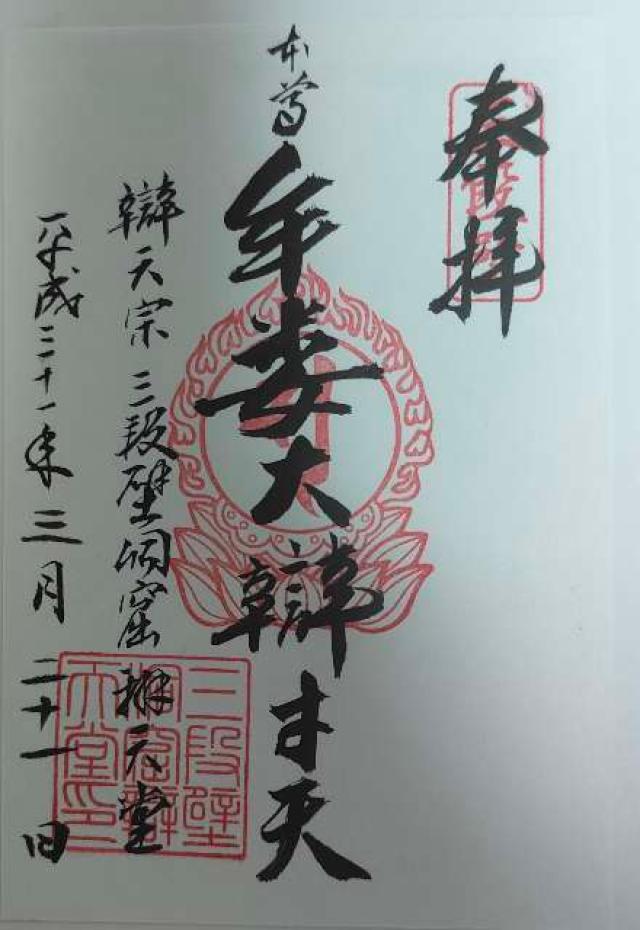 奉拝
本尊
牟婁大辯才天
辯天宗 三段壁洞窟 辯天堂
平成三十一年三月二十一日
三段壁
三段壁
洞窟辯
天堂印